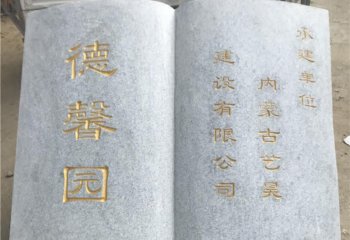 德馨园
承建单位
内蒙古艺昊
建设有限公司